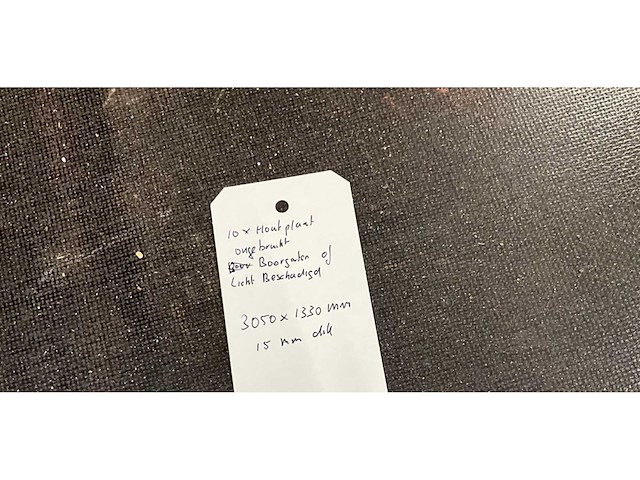 10 x Hout plaat
ongebruikt
Boorgaten of
Licht Beschadigd
3050 x 1330 mm
15 mm dik